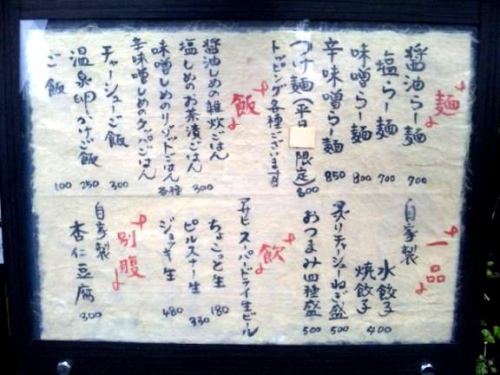 麺
醤油らー麺 700
塩らー麺 700
味噌らー麺 800
辛味噌らー麺 850
つけ麺(平日 限定) 800
トッピング各種ございます
飯
醤油しめの雑炊ごはん
塩しめのお茶漬ごはん 300
味噌しめのリゾットごはん 各種
辛味噌しめのクッパごはん
チャーシューご飯 300
温泉卵しょうゆご飯 250
ご飯 100
一品
自家製
水餃子
焼餃子 400
炙りチャーシューねぎ盛 500
おつまみ四種盛 500
飲
アサヒスーパードライ生ビール
ちょこっと生 180
ピルスナー生 330
ジョッキ生 480
別腹
自家製
杏仁豆腐 300